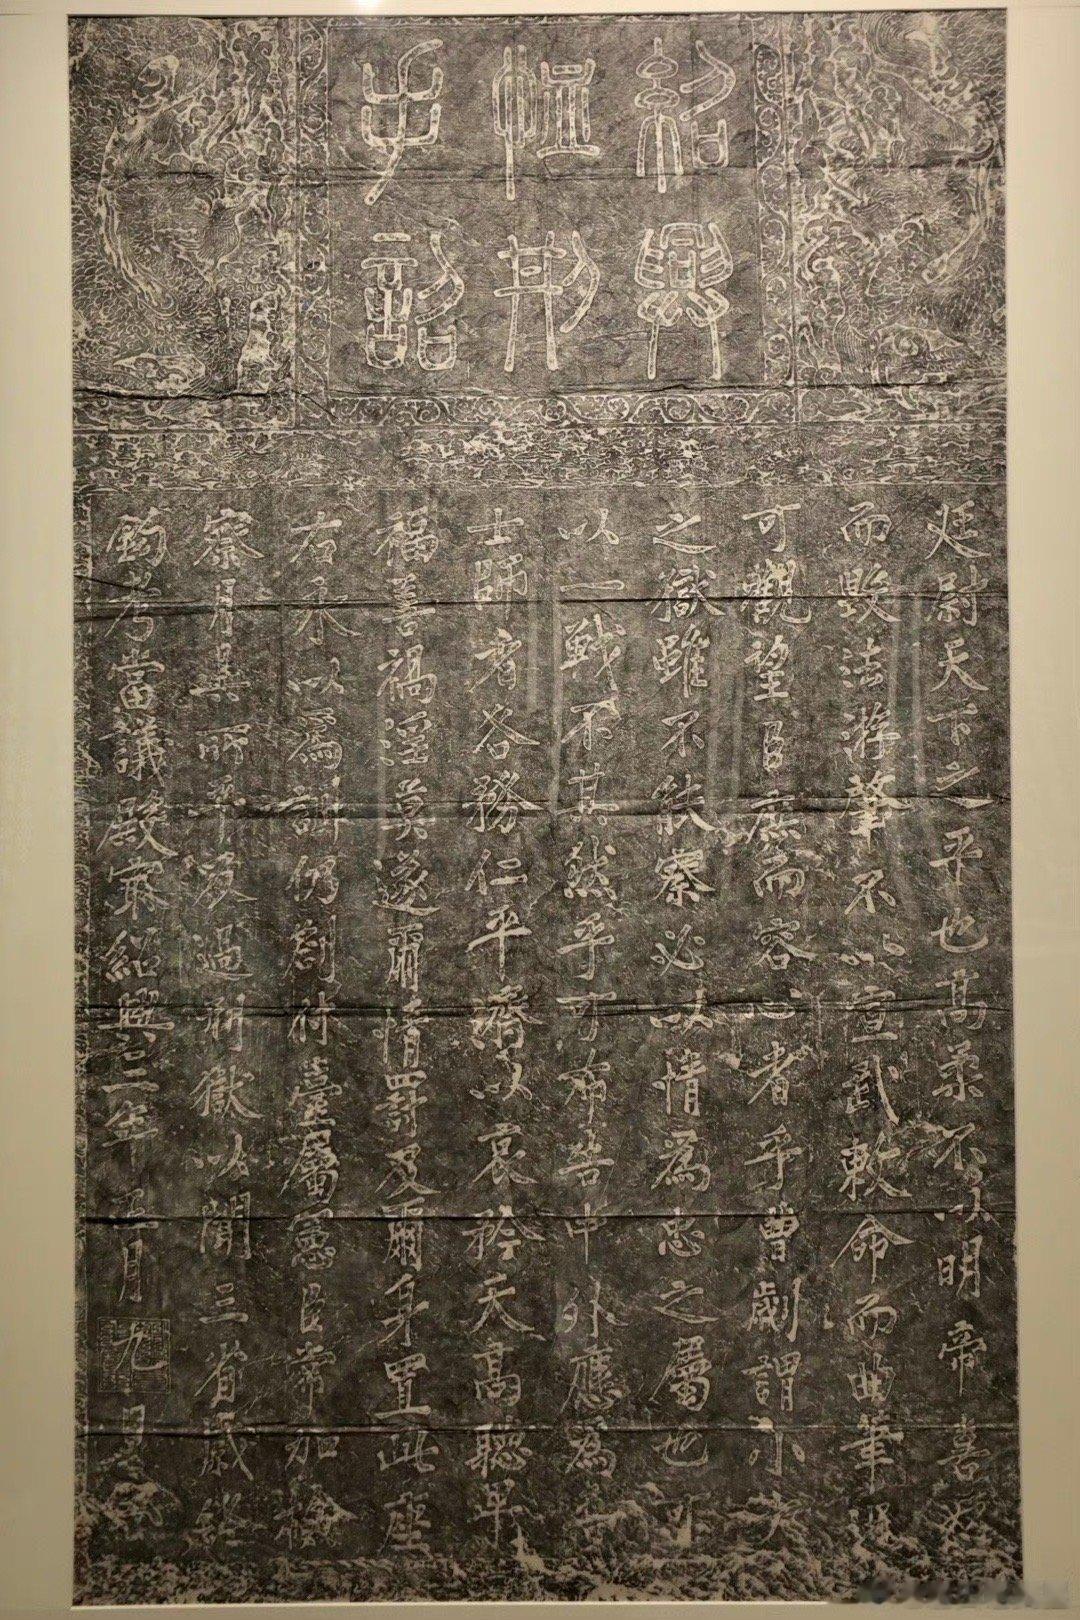 紹興
恤刑
手詔
廷尉天下之平也高柔不以明帝喜怒
而毀法游肇不以宣武敕命而曲筆況
可觀望臣庶而容心者乎曹劌謂小大
之獄雖不能察必以情為忠之屬也可
以一戰不其然乎可布告中外應為吾
士師者各務仁平濟以哀矜天高聽卑
福善禍淫莫遂爾情罰及爾身置此座
右永以為訓仍劄付臺屬憲臣常加檢
察月具所平反過刑獄以聞三省歲終
鉤考當議殿最紹興二年五月九日